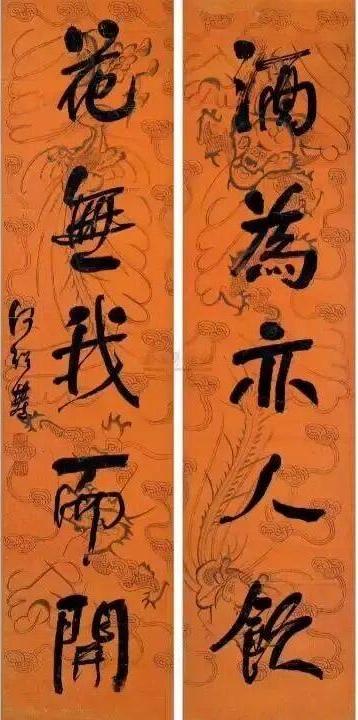 酒為亦人飲
花無我而開
何紹基